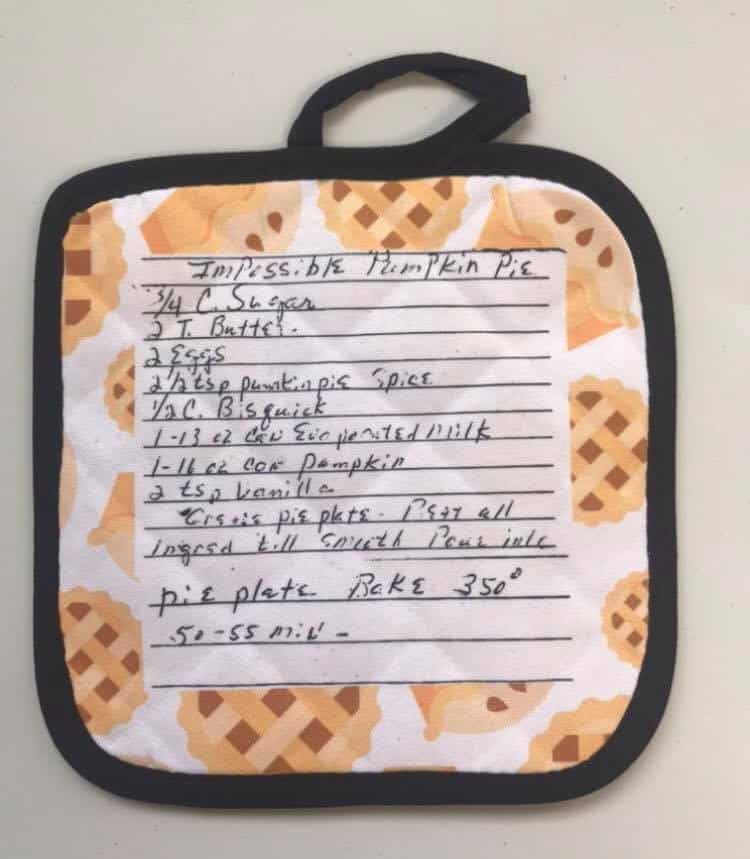 Impossible Pumpkin Pie
3/4 C. Sugar
2 T. Butter.
2 Eggs
2 1/2 tsp pumkin pie Spice
1/2 C. Bisquick
1-13 oz can Evaporated Milk
1-16 oz can Pumpkin
2 tsp Vanilla
Grease pie plate - Beat all
ingred till Smooth Pour into
pie plate Bake 350°
50-55 min -